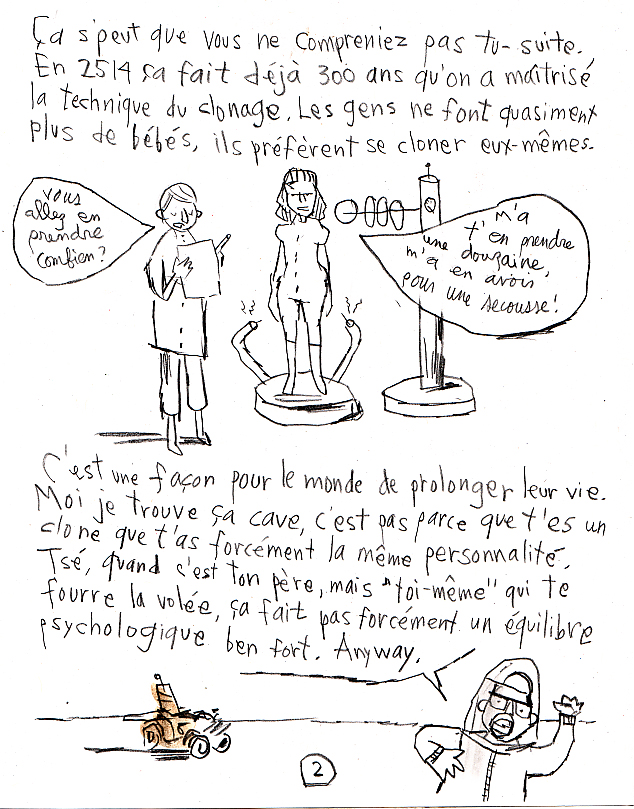 Ça s'peut que vous ne compreniez pas tu-suite.
En 2514 ça fait déjà 300 ans qu'on a maîtrisé
la technique du clonage. Les gens ne font quasiment
plus de bébés, ils préfèrent se cloner eux-mêmes.
vous
allez en
prendre
combien?
m'a
t'en prendre
une douzaine,
m'a en avoir
pour une secousse!
C'est une façon pour le monde de prolonger leur vie.
Moi je trouve ça cave, c'est pas parce que t'es un
clone que t'as forcément la même personnalité.
Tsé, quand c'est ton père, mais "toi-même" qui te
fourre la volée, ça fait pas forcément un équilibre
psychologique ben fort. Anyway.
2